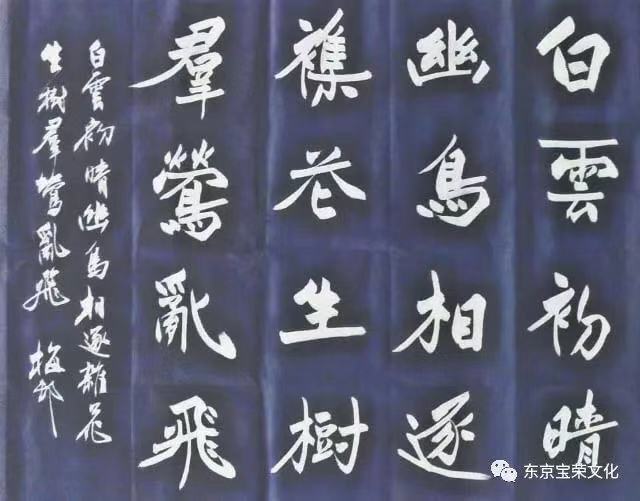 白雲初晴
幽鳥相逐
襍花生樹
羣鶯亂飛
白雲初晴幽鳥相逐雜花
生樹羣鶯亂飛 梅邨
东京宝荣文化